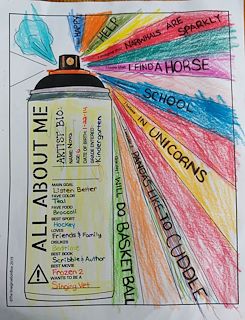 HAPPY
HELP
NARWHALS ARE SPARKLY
I FIND A HORSE
SCHOOL
IN UNICORNS
PANDAS LIKE TO CUDDLE
DO BASKETBALL
ALL ABOUT ME
ARTIST BIO:
NAME:
AGE: 6
DATE OF BIRTH:
GRADE ENTERED:
Kindergarten
MAIN GOAL
Listen Better
FAVE COLOR
Teal
FAVE FOOD
Broccoli
BEST SPORT
Hockey
LOVES
Friends & Family
DISLIKES
Bedtime
BEST BOOK
Scribble & Author
BEST MOVIE
Frozen 2
WANTS TO BE A
Singing Vet